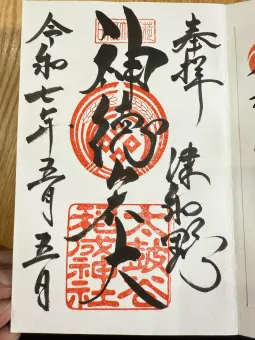 奉拝
津和野
神徳宏大
太皷谷
稲成神社
令和七年五月五日